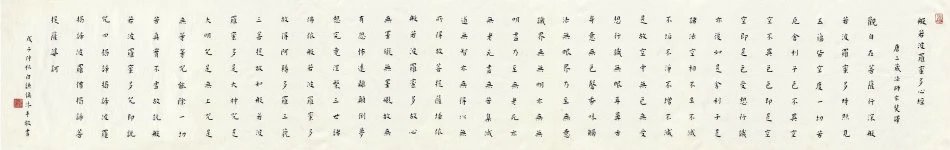 般若波羅蜜多心經
唐三藏法師玄奘譯
觀自在菩薩行深般
若波羅蜜多時照見
五蘊皆空度一切苦
厄舍利子色不異空
空不異色色即是空
空即是色受想行識
亦復如是舍利子是
諸法空相不生不滅
不垢不淨不增不減
是故空中無色無受
想行識無眼耳鼻舌
身意無色聲香味觸
法無眼界乃至無意
識界無無明亦無無
明盡乃至無老死亦
無老死盡無苦集滅
道無智亦無得以無
所得故菩提薩埵依
般若波羅蜜多故心
無罣礙無罣礙故無
有恐怖遠離顛倒夢
想究竟涅槃三世諸
佛依般若波羅蜜多
故得阿耨多羅三藐
三菩提故知般若波
羅蜜多是大神咒是
大明咒是無上咒是
無等等咒能除一切
苦真實不虛故說般
若波羅蜜多咒即說
咒曰揭諦揭諦波羅
揭諦波羅僧揭諦菩
提薩婆訶
戊子仲秋